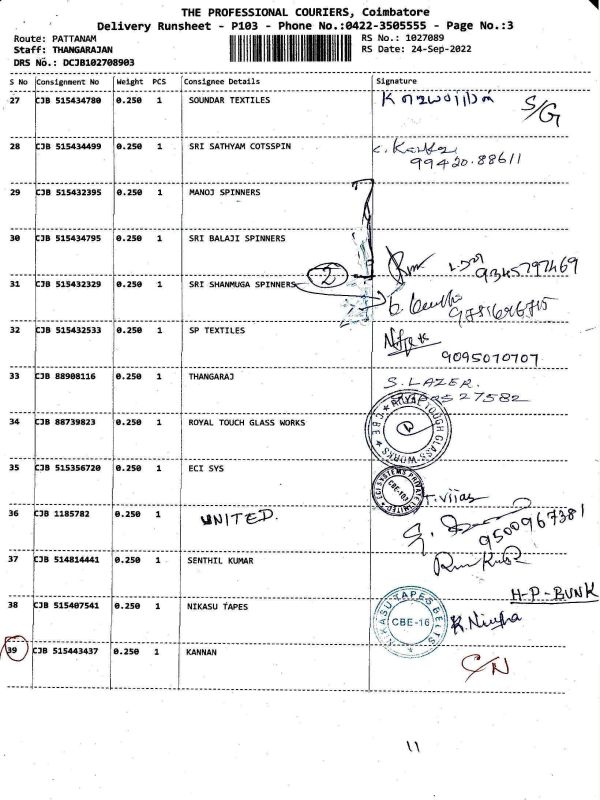 THE PROFESSIONAL COURIERS, Coimbatore
Delivery Runsheet - P103 - Phone No.:0422-3505555 - Page No.:3
Route: PATTANAM
RS No.: 1027089
Staff: THANGARAJAN
RS Date: 24-Sep-2022
DRS No.: DCJB102708903
S No Consignment No Weight PCS Consignee Details Signature
27 CJB 515434780 0.250 1 SOUNDAR TEXTILES S/G
28 CJB 515434499 0.250 1 SRI SATHYAM COTSPIN
99420.88611
29 CJB 515432395 0.250 1 MANOJ SPINNERS
30 CJB 515434795 0.250 1 SRI BALAJI SPINNERS
2
31 CJB 515432329 0.250 1 SRI SHANMUGA SPINNERS
32 CJB 515432533 0.250 1 SP TEXTILES
9095070707
33 CJB 88908116 0.250 1 THANGARAJ S. LAZER.
34 CJB 88739823 0.250 1 ROYAL TOUCH GLASS WORKS ROYAL TOUGH GLASS WORKS CBE
35 CJB 515356720 0.250 1 ECI SYS ECI SYSTEMS PRIVATE LIMITED CBE-103
T. Vijas
36 CJB 1185782 0.250 1 UNITED.
9500967381
37 CJB 514814441 0.250 1 SENTHIL KUMAR
H-P-BUNK
38 CJB 515407541 0.250 1 NIKASU TAPES NIKASU TAPES BELTS CBE-16
39 CJB 515443437 0.250 1 KANNAN CN
11